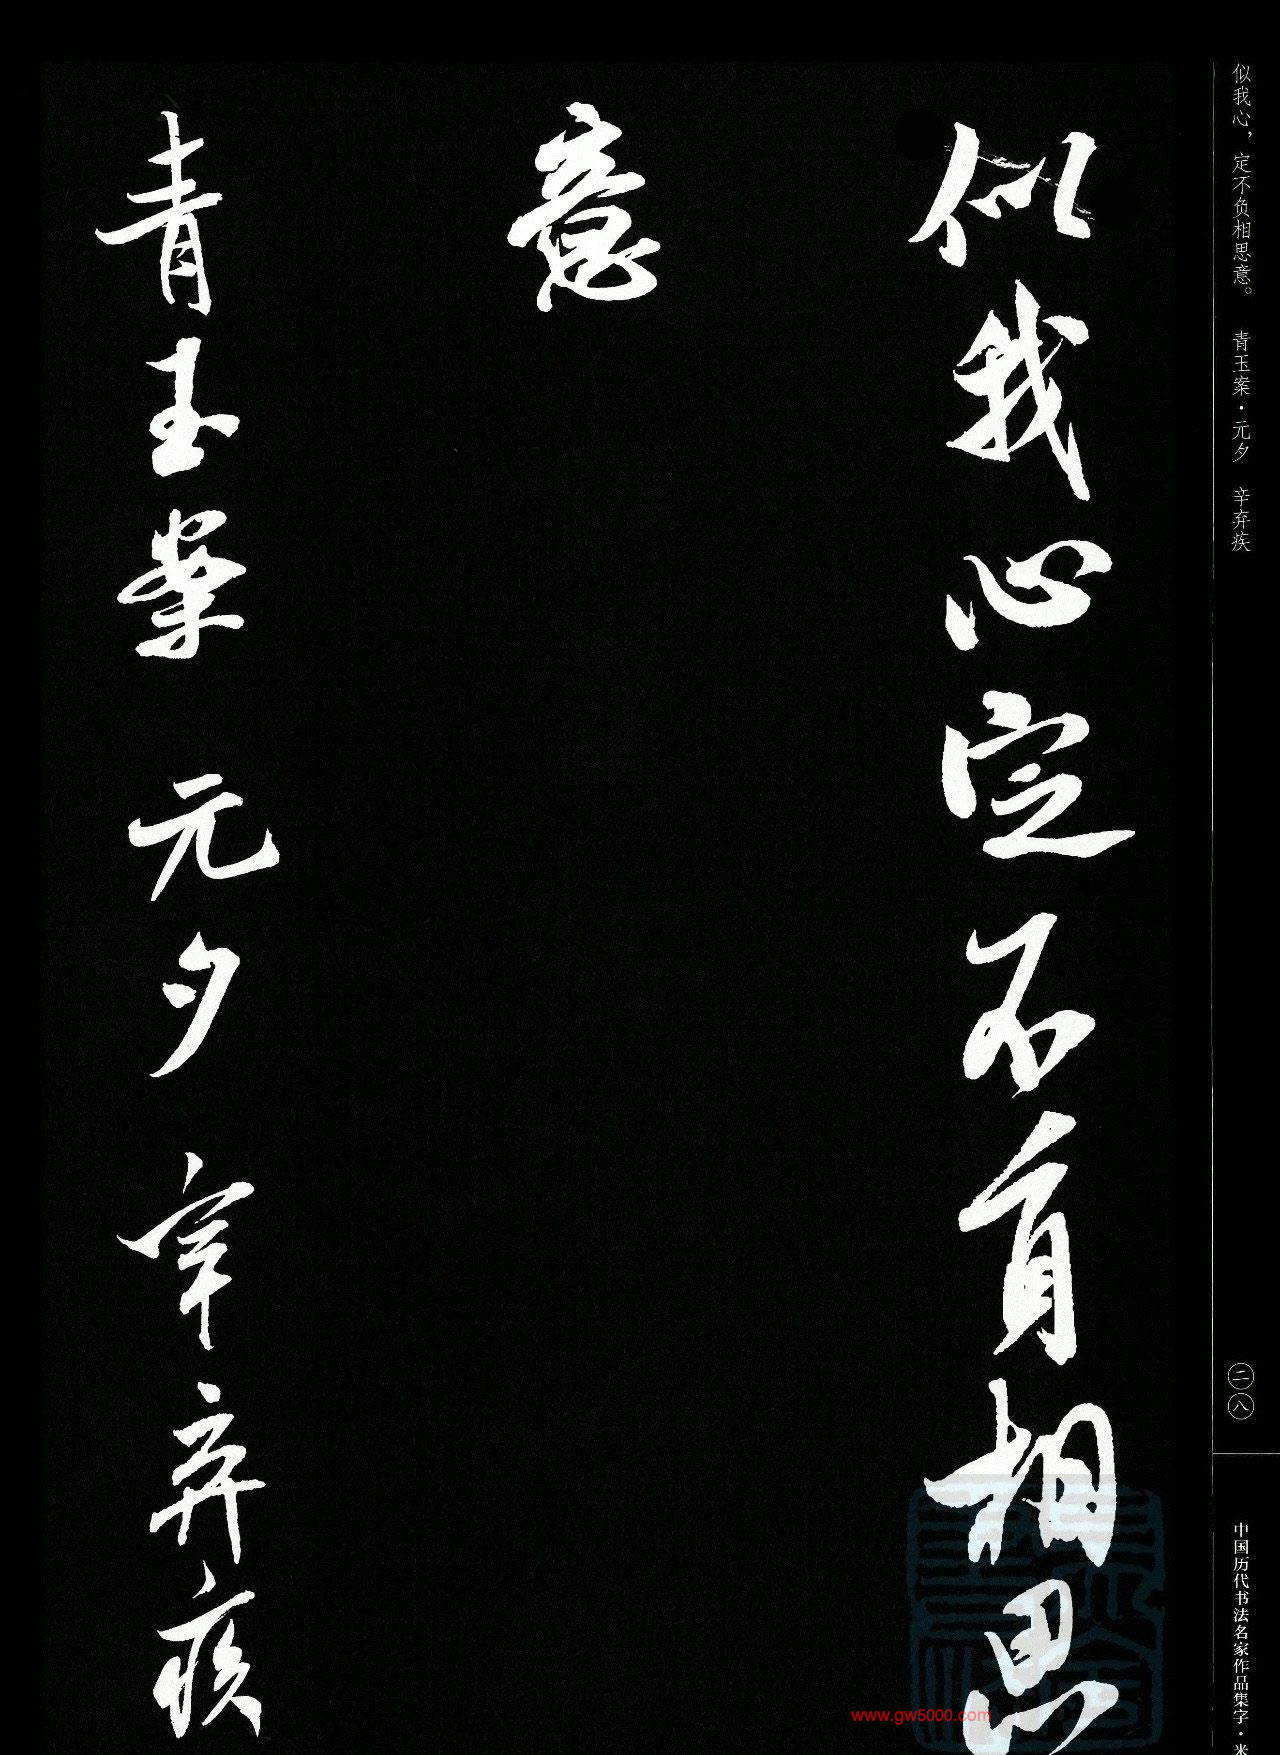 似我心，定不负相思意。 青玉案·元夕 辛弃疾
二八
中国历代书法名家作品集字·米
似我心定不负相思
意
青玉案 元夕 辛弃疾
www.gw5000.com